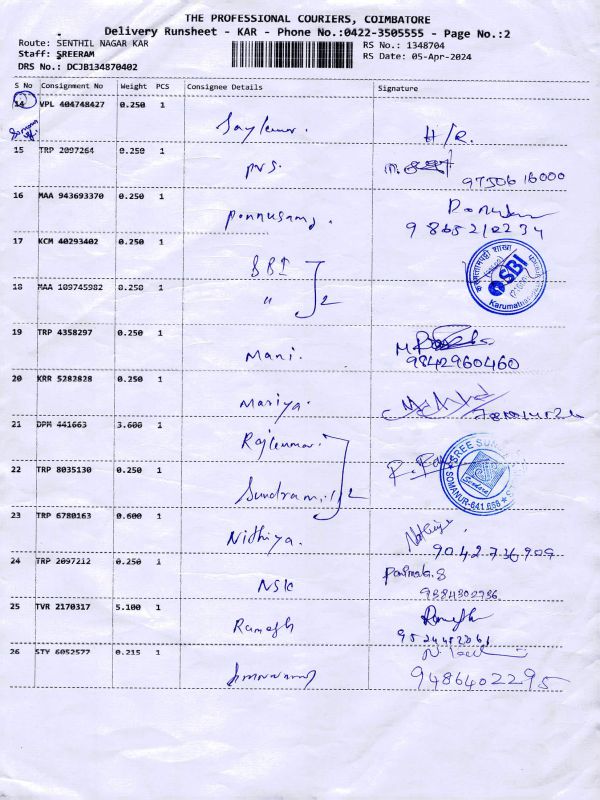 THE PROFESSIONAL COURIERS, COIMBATORE
Delivery Runsheet - KAR - Phone No.:0422-3505555 - Page No.:2
Route: SENTHIL NAGAR KAR RS No.: 1348704
Staff: SREERAM RS Date: 05-Apr-2024
DRS No.: DCJB134870402
S No Consignment No Weight PCS Consignee Details Signature
14 VPL 404748427 0.250 1
H/R.
15 TRP 2097264 0.250 1
PVS. 9750616000
16 MAA 943693370 0.250 1
Ponnusamy. 9865210234
17 KCM 40293402 0.250 1
SBI SBI
18 MAA 109745982 0.250 1
" 2
19 TRP 4358297 0.250 1
Mani. 9842960460
20 KRR 5282828 0.250 1
Mariya.
21 DPM 441663 3.600 1
Rajkumar.
22 TRP 8035130 0.250 1
Sundram 2 SOMANUR-641 668
23 TRP 6780163 0.600 1
Nidhiya. 9042736909
24 TRP 2097212 0.250 1
NSK Parimala.S
9384302736
25 TVR 2170317 5.100 1
Ramesh Ramesh
26 STY 6052577 0.215 1
9486402295